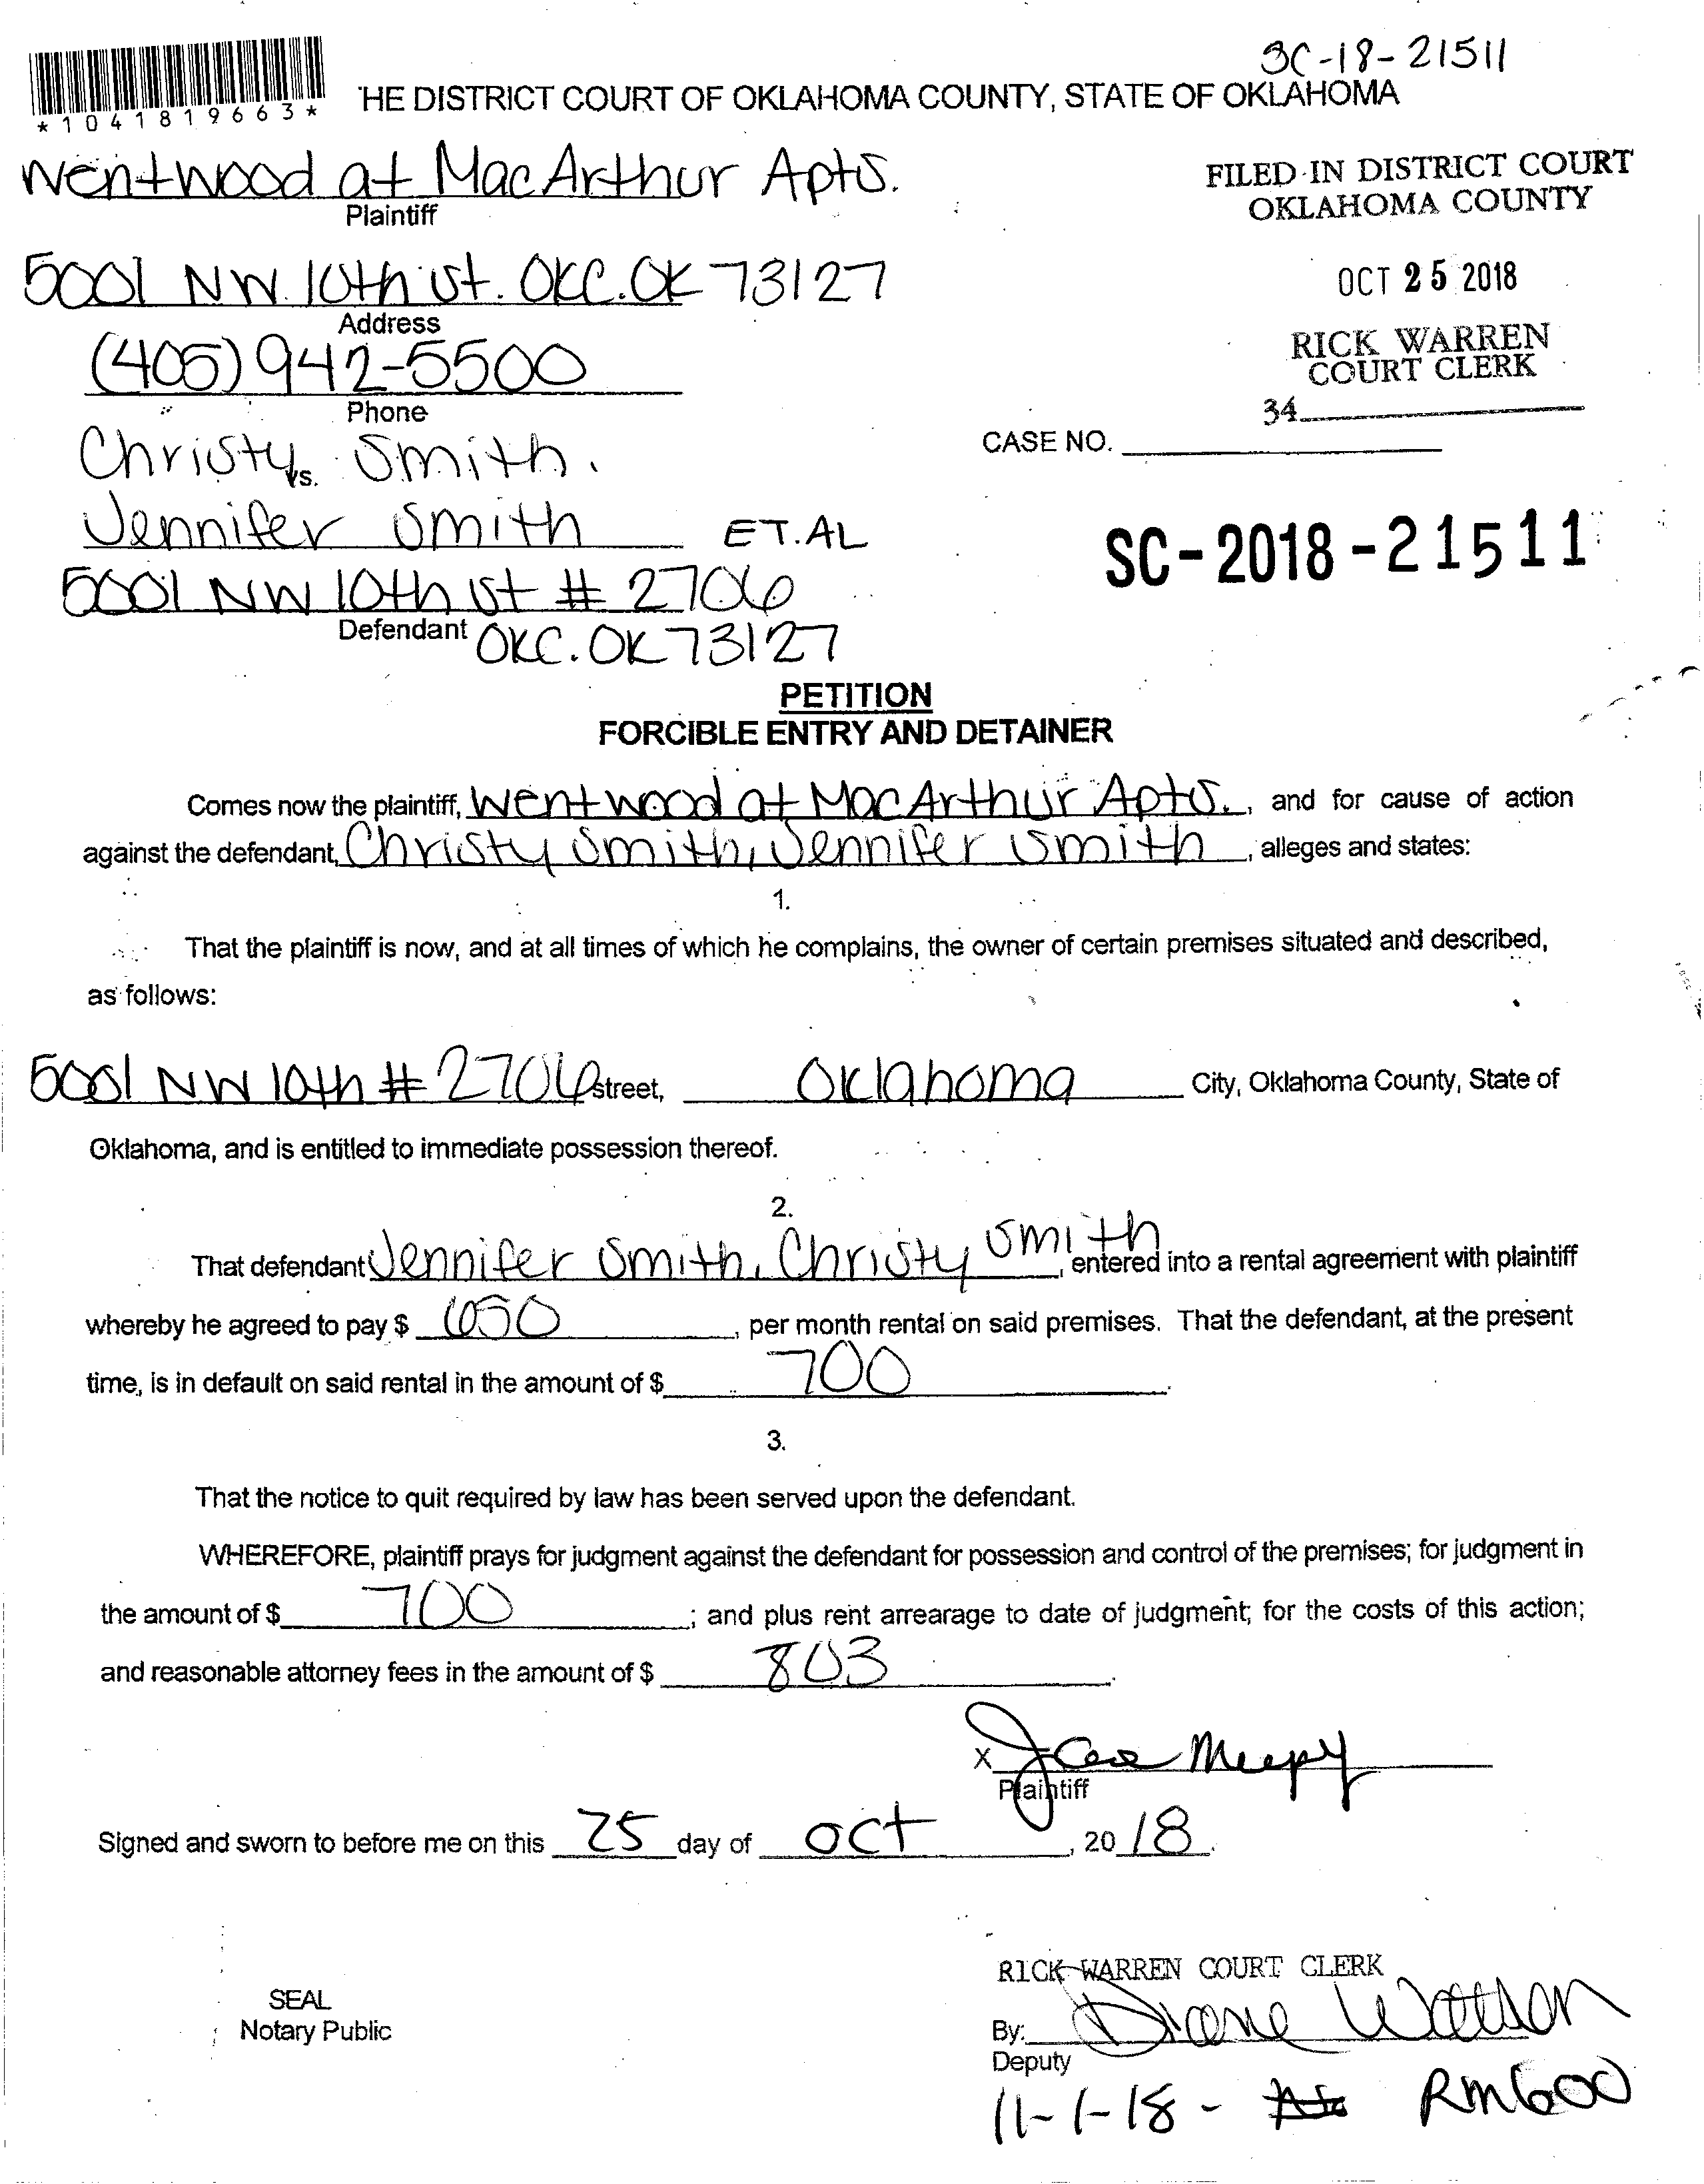 SC-18-21511
*1041819663*
'HE DISTRICT COURT OF OKLAHOMA COUNTY, STATE OF OKLAHOMA
Wentwood at MacArthur Apts.
Plaintiff
FILED IN DISTRICT COURT
OKLAHOMA COUNTY
5001 NW 10th st. OKC. OK 73127
Address
OCT 25 2018
(405) 942-5500
Phone
RICK WARREN
COURT CLERK
34
CASE NO.
Christy Smith.
vs.
Jennifer Smith ET.AL
SC-2018-21511
5001 NW 10th st # 2706
Defendant OKC. OK 73127
PETITION
FORCIBLE ENTRY AND DETAINER
Comes now the plaintiff, Wentwood at MacArthur Apts., and for cause of action
against the defendant, Christy Smith, Jennifer Smith, alleges and states:
1.
That the plaintiff is now, and at all times of which he complains, the owner of certain premises situated and described,
as follows:
5001 NW 10th # 2706 street, Oklahoma City, Oklahoma County, State of
Oklahoma, and is entitled to immediate possession thereof.
2.
That defendant Jennifer Smith, Christy Smith, entered into a rental agreement with plaintiff
whereby he agreed to pay $ 650, per month rental on said premises. That the defendant, at the present
time, is in default on said rental in the amount of $ 700.
3.
That the notice to quit required by law has been served upon the defendant.
WHEREFORE, plaintiff prays for judgment against the defendant for possession and control of the premises; for judgment in
the amount of $ 700; and plus rent arrearage to date of judgment; for the costs of this action;
and reasonable attorney fees in the amount of $ 803.
X
Plaintiff
Signed and sworn to before me on this 25 day of Oct, 2018.
RICK WARREN COURT CLERK
SEAL
Notary Public
By: Diane Watson
Deputy
11-1-18 - RM600